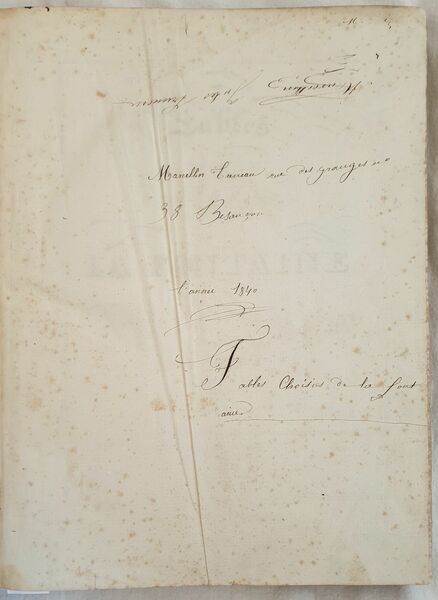 Marcellin
Jules
Marcellin rue des granges no
38 Besançon
l'année 1840
Fables Choisies de la Font
aine